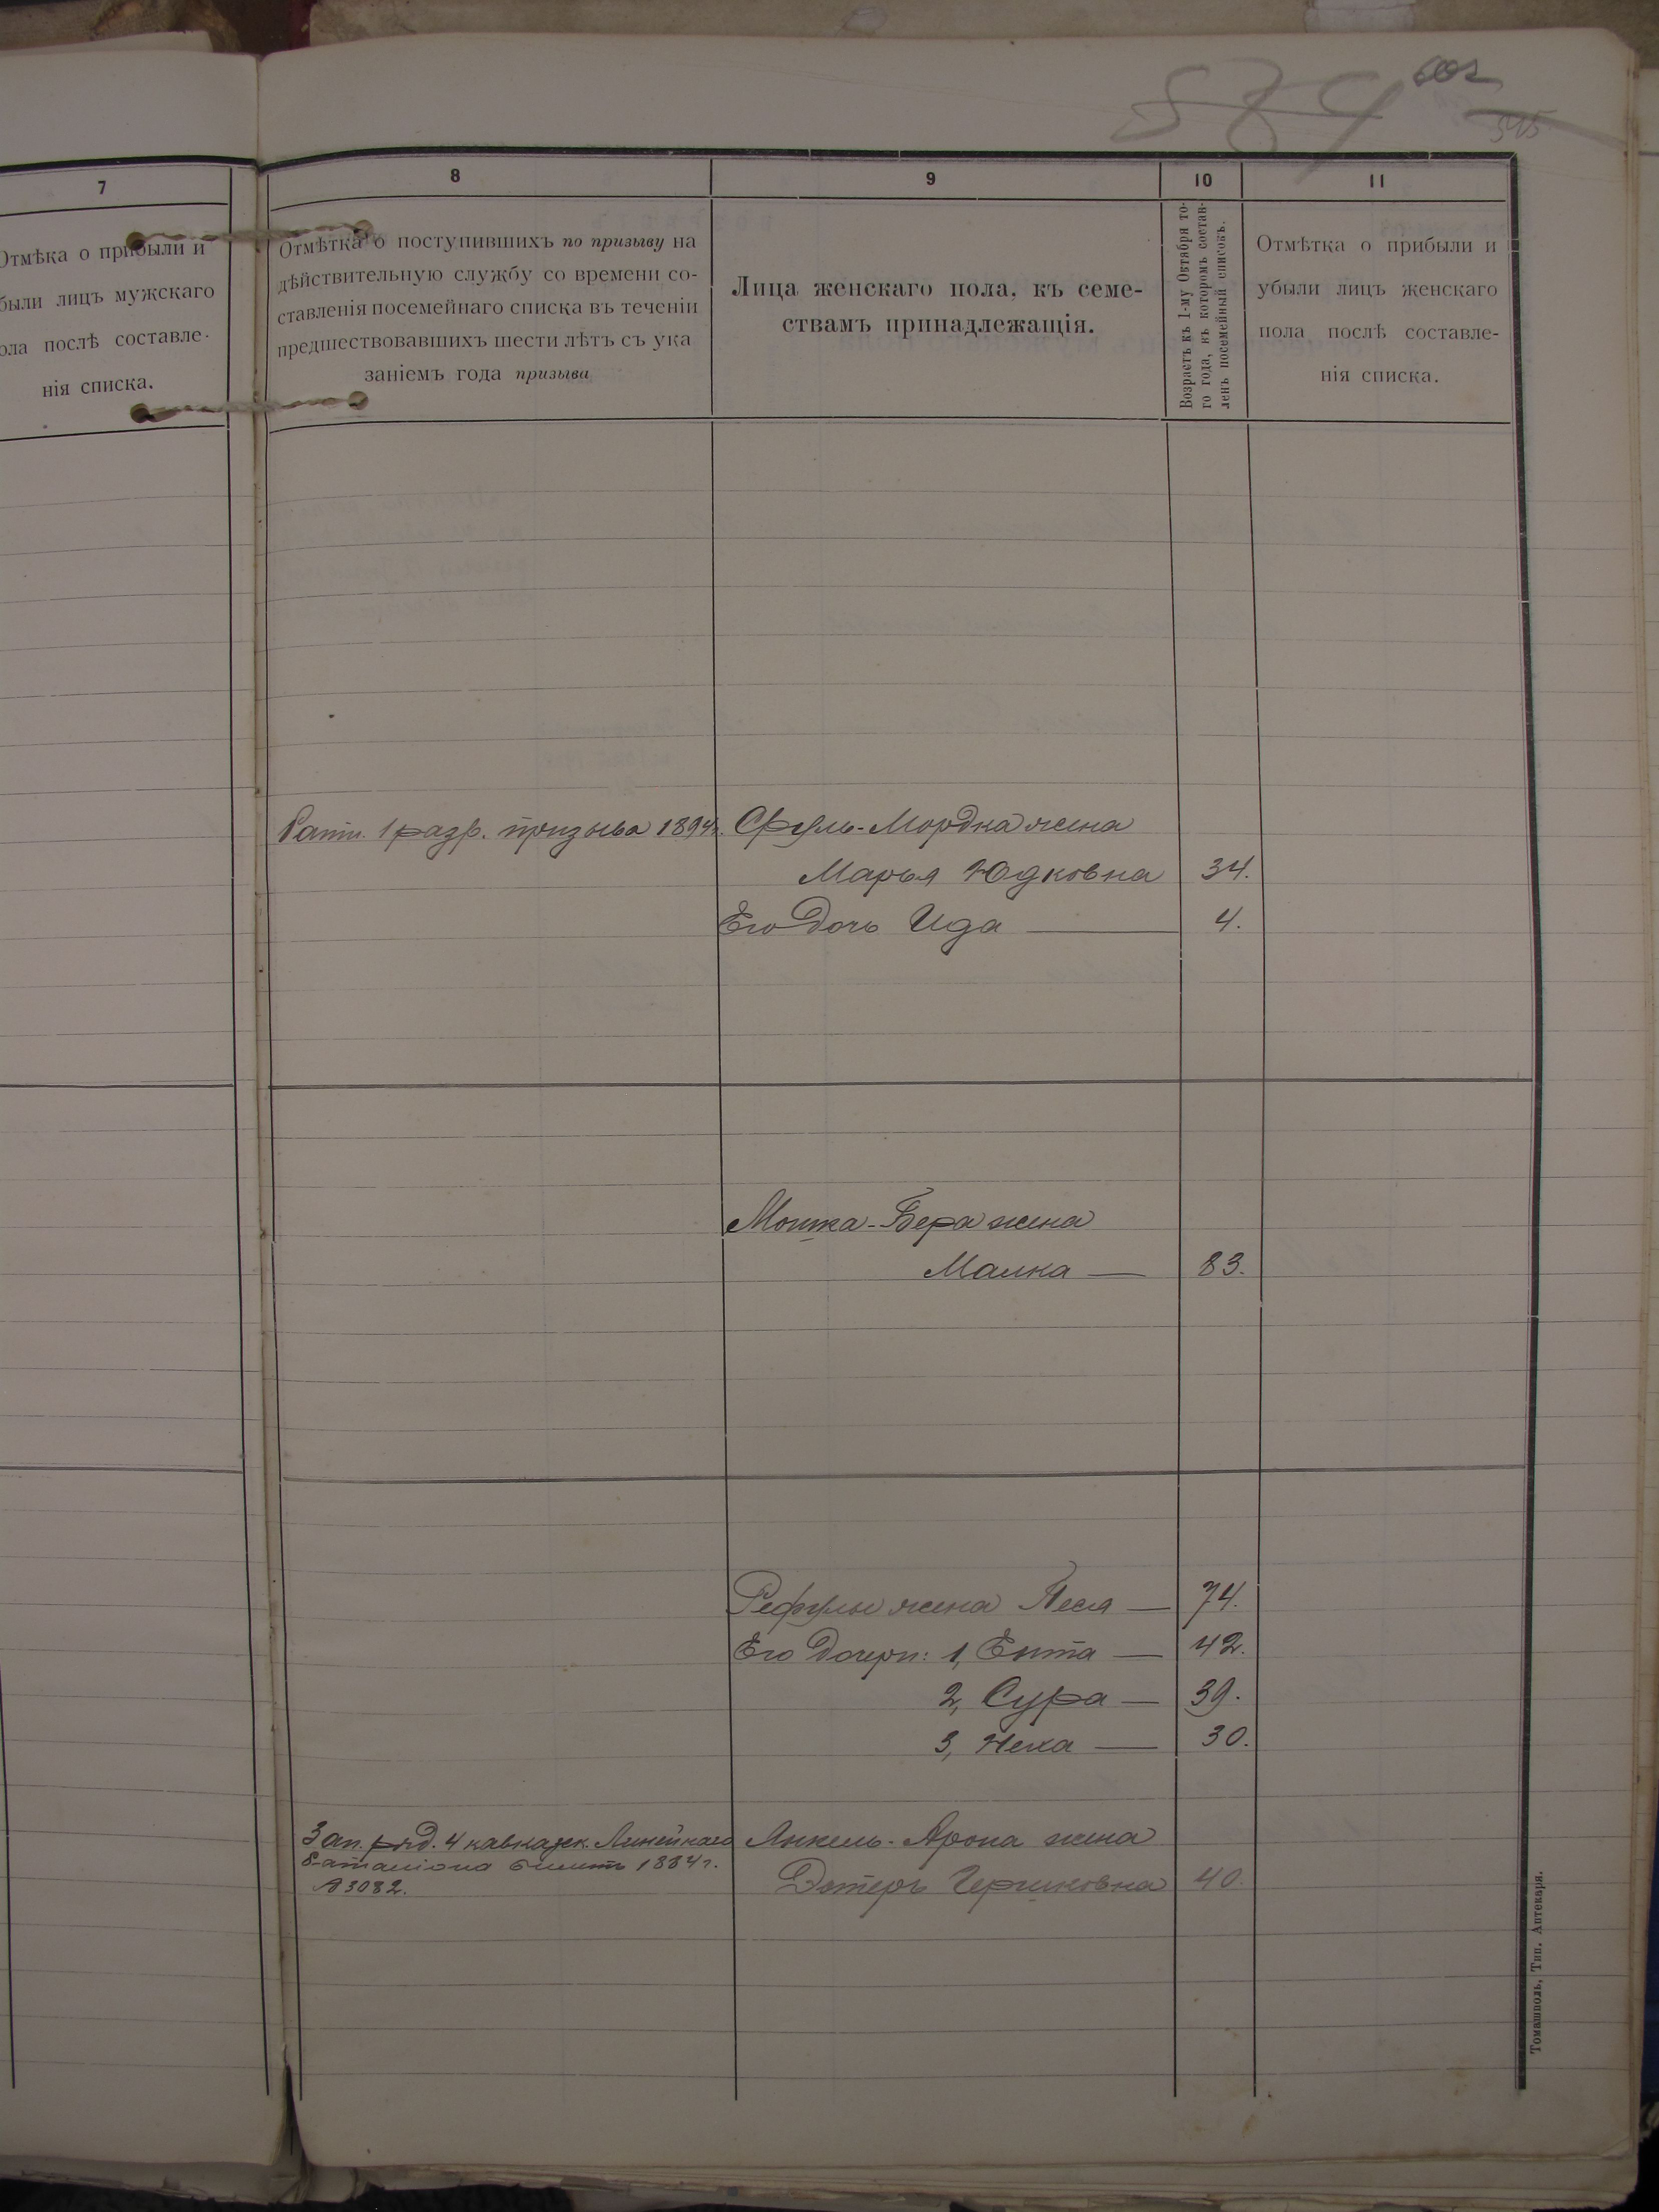 584
602
515
7
Отмѣка о прибыли и
были лицъ мужскаго
ола послѣ составле-
нія списка.
8
Отмѣтка о поступившихъ по призыву на
дѣйствительную службу со времени со-
ставленія посемейнаго списка въ теченіи
предшествовавшихъ шести лѣтъ съ ука
заніемъ года призыва
9
Лица женскаго пола, къ семе-
ствамъ принадлежащія.
10
Возрастъ къ 1-му Октября то-
го года, въ которомъ состав-
ленъ посемейный списокъ.
11
Отмѣтка о прибыли и
убыли лицъ женскаго
пола послѣ составле-
нія списка.
Ратн. 1 разр. призыва 1894г. Сруль-Мордка жена
Марья Юдковна 34.
Его дочь Ида 4.
Мошка-Бера жена
Малка — 83.
жена Песя — 74.
Его дочери: 1, Ента — 42.
2, Сура — 39.
3, Неха — 30.
Зап. ряд. 4 кавказск. Линейнаго Янкель-Арона жена
баталіона билетъ 1884 г.
№ 3082.
Эстеръ Гершковна 40.
Томашполь, Тип. Аптекаря.